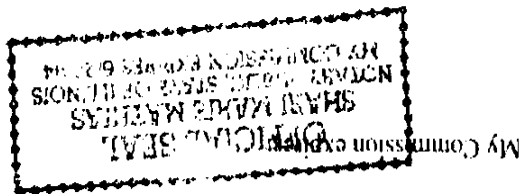 My Commission expires
OFFICIAL SEAL
SHARI MARIE MATHIAS
NOTARY PUBLIC, STATE OF ILLINOIS
MY COMMISSION EXPIRES